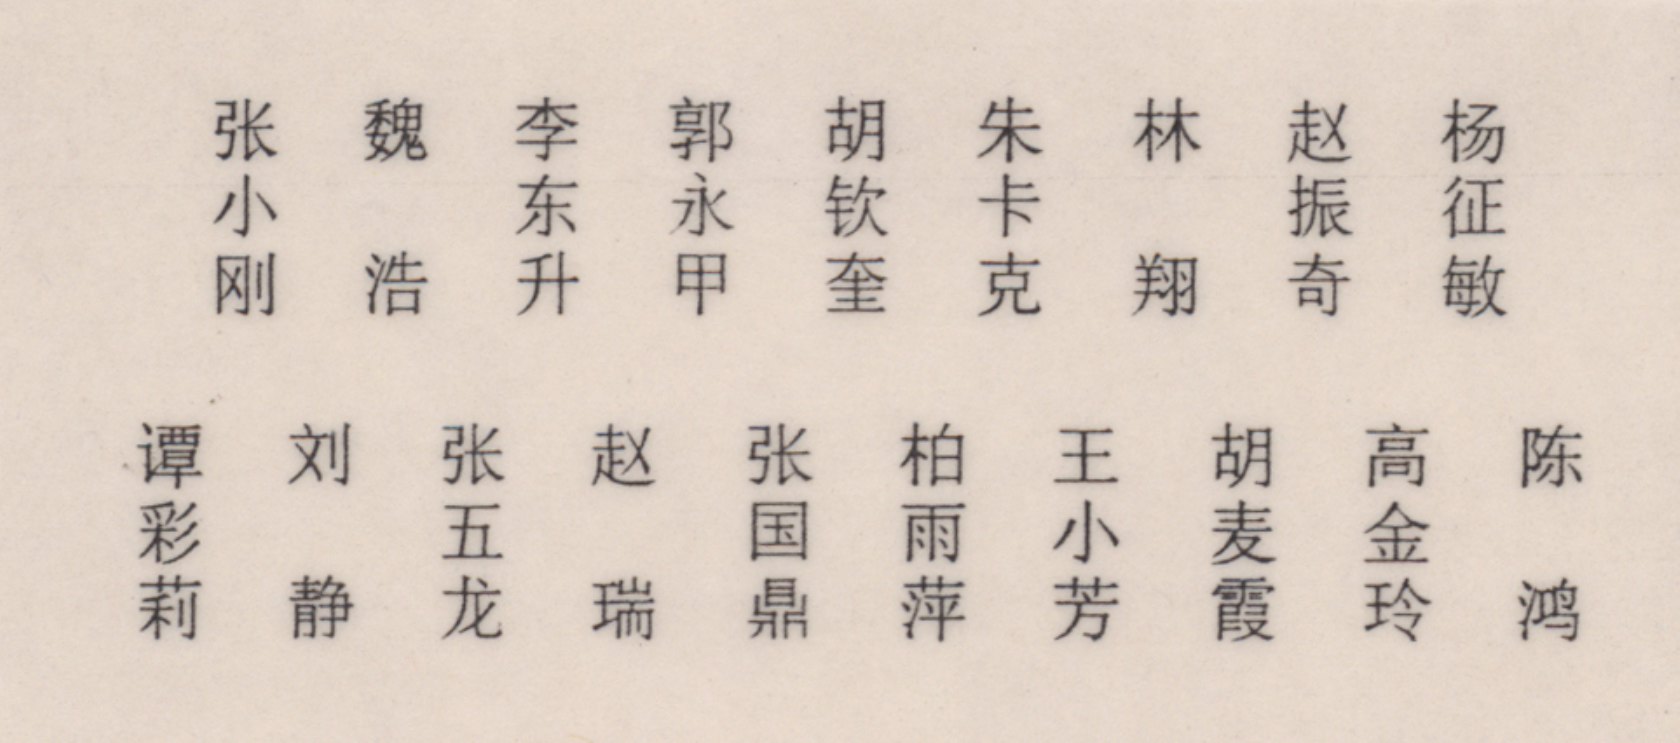 张小刚
魏浩
李东升
郭永甲
胡钦奎
朱卡克
林翔
赵振奇
杨征敏
谭彩莉
刘静
张五龙
赵瑞
张国鼎
柏雨萍
王小芳
胡麦霞
高金玲
陈鸿